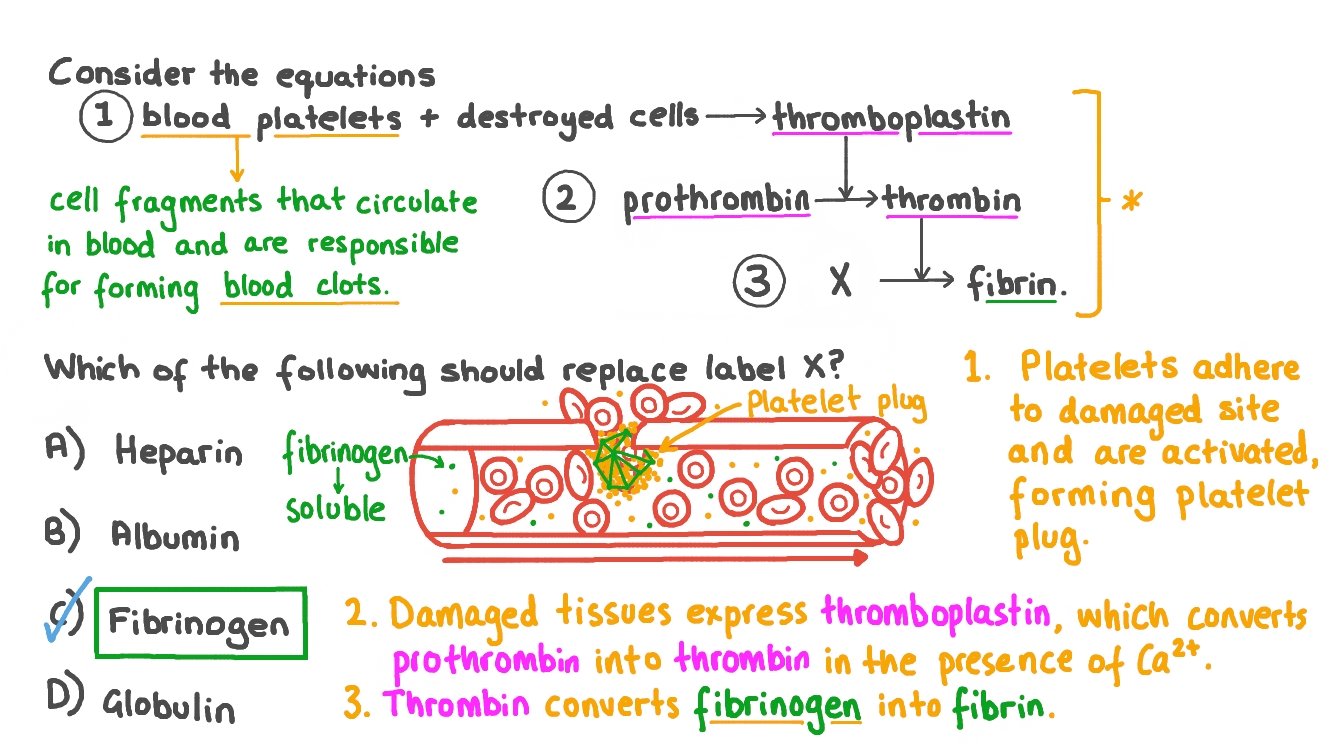 Consider the equations
1 blood platelets + destroyed cells → thromboplastin
cell fragments that circulate
in blood and are responsible
for forming blood clots.
2 prothrombin → thrombin
*
3 X → fibrin.
Which of the following should replace label X?
A) Heparin
B) Albumin
C) Fibrinogen
D) Globulin
fibrinogen
soluble
Platelet plug
1. Platelets adhere
to damaged site
and are activated,
forming platelet
plug.
2. Damaged tissues express thromboplastin, which converts
prothrombin into thrombin in the presence of Ca²⁺.
3. Thrombin converts fibrinogen into fibrin.